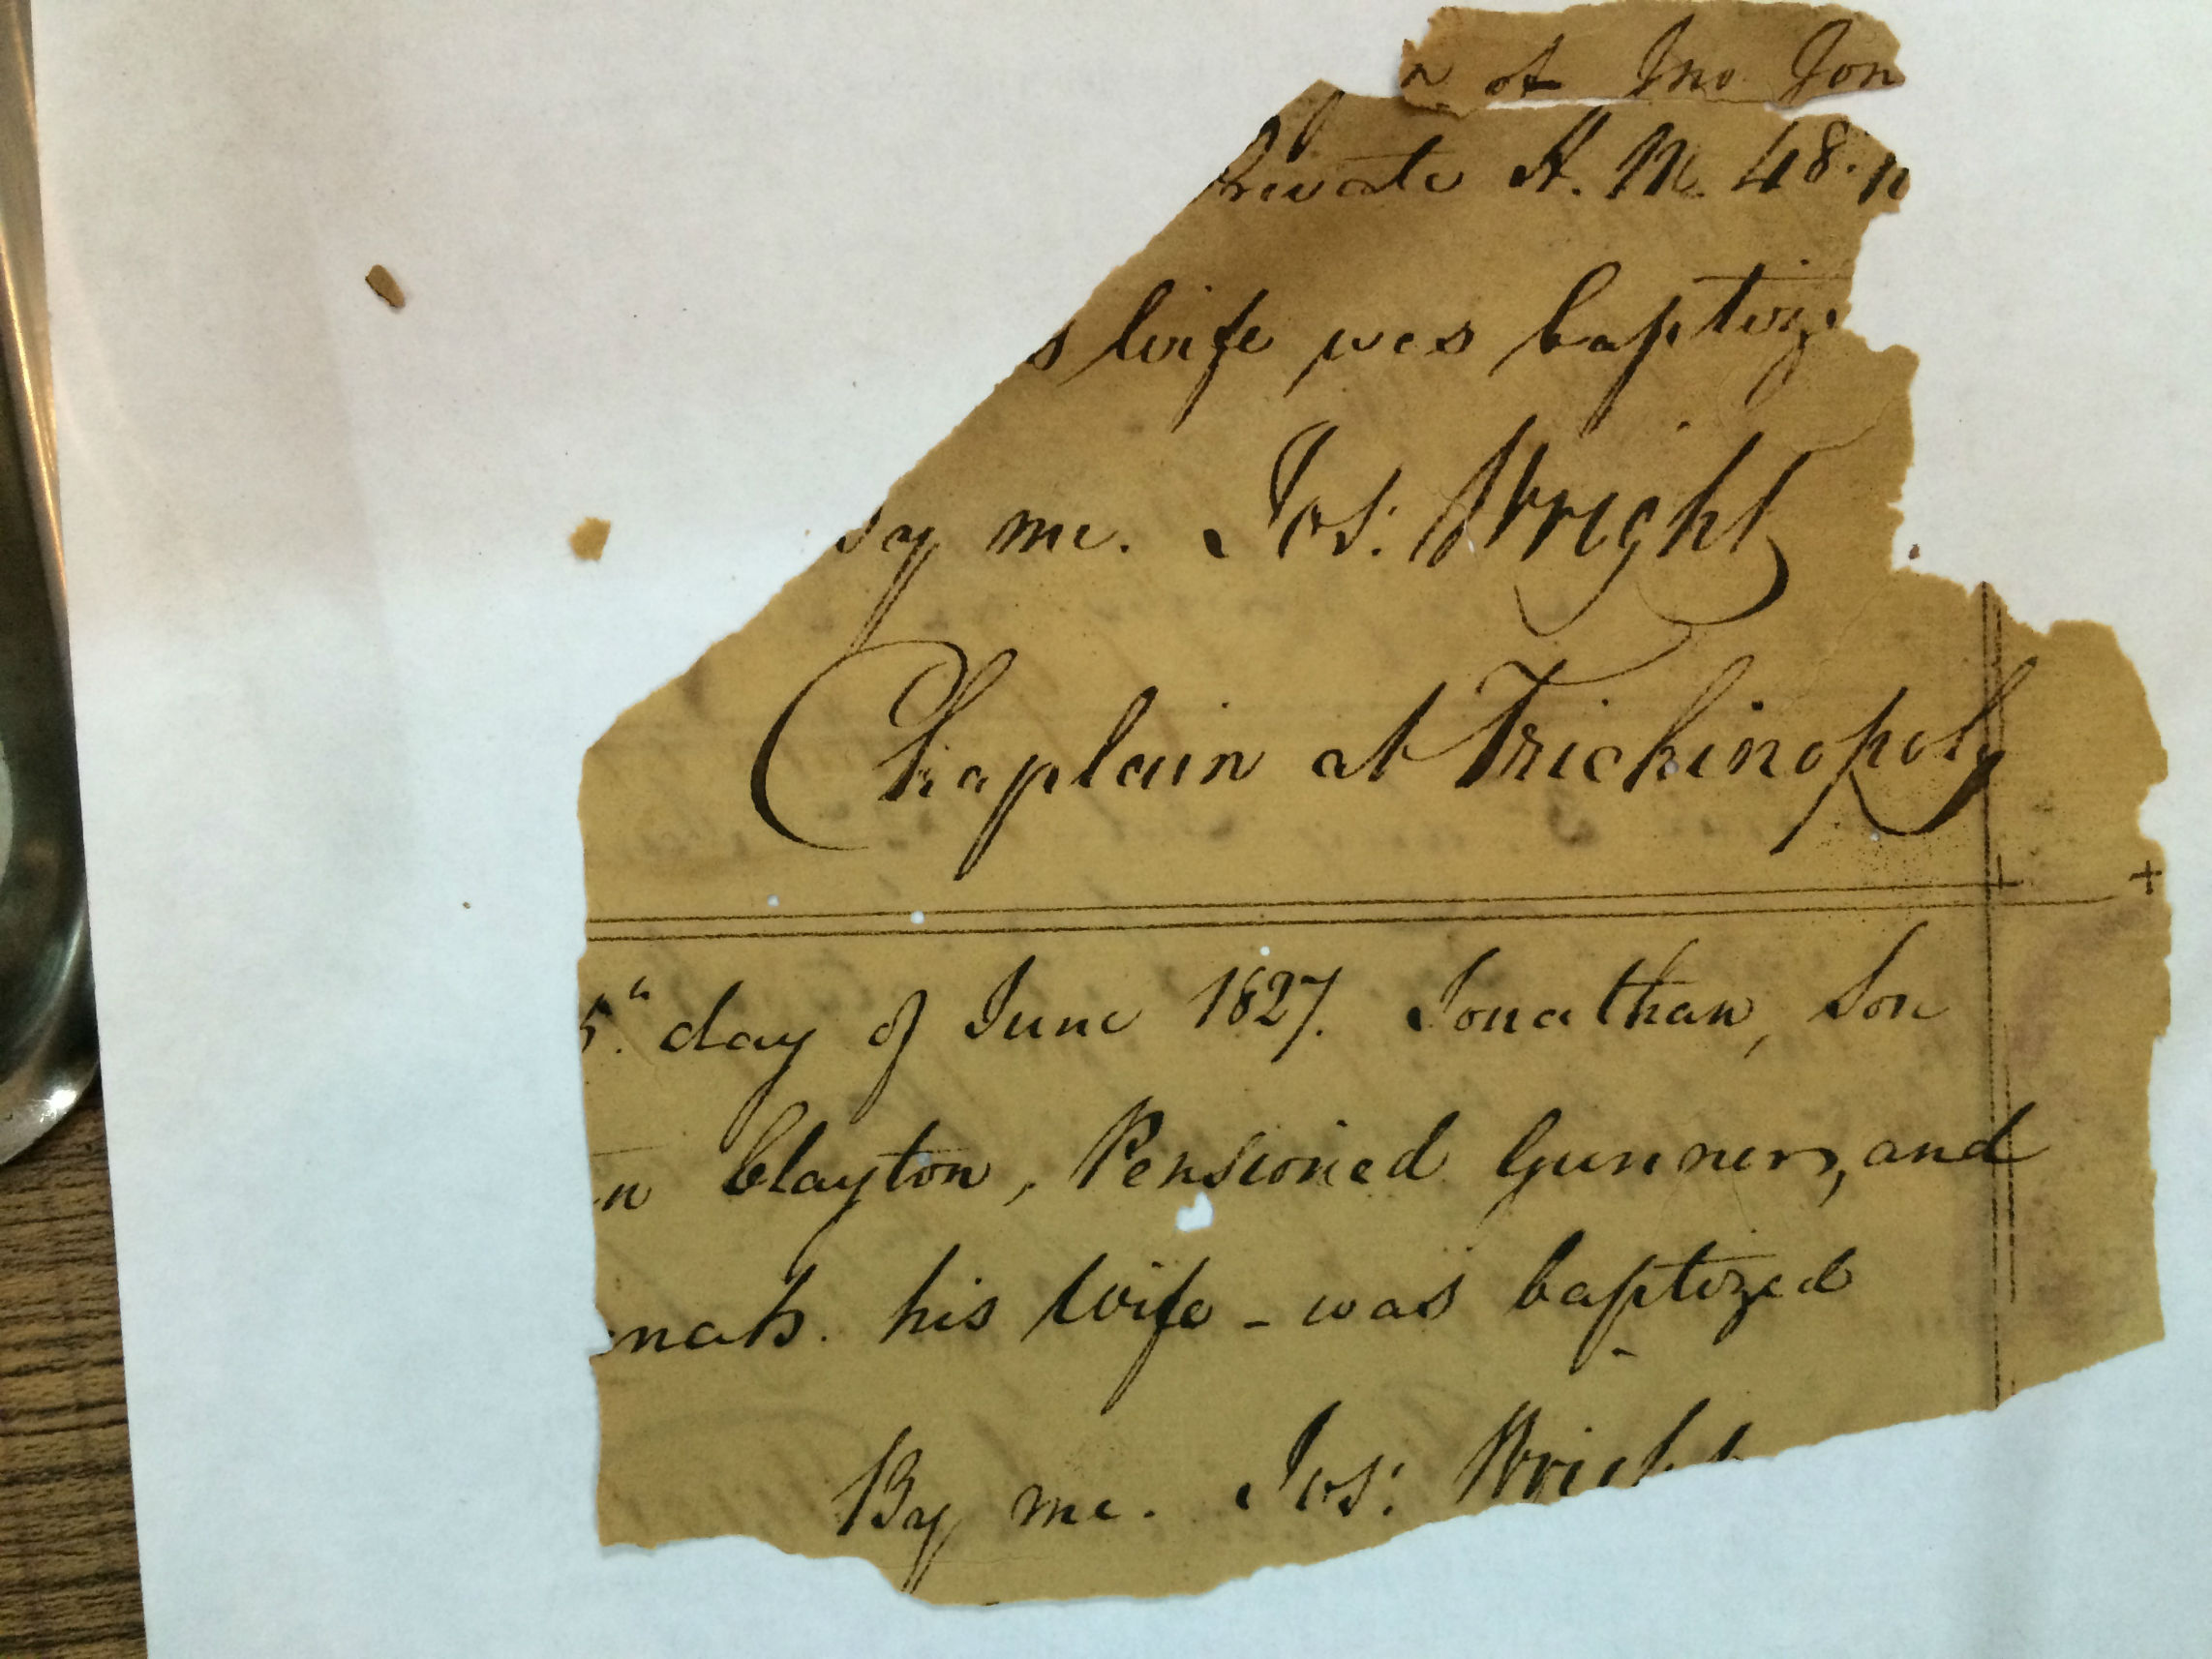 n of Jno Jon
Private H. M. 48
s wife was baptize
By me. Jos: Wright
Chaplain at Trichinopoly
5th day of June 1827. Jonathan, Son
n Clayton, Pensioned Gunner, and
nah his wife - was baptized
By me. Jos: Wright